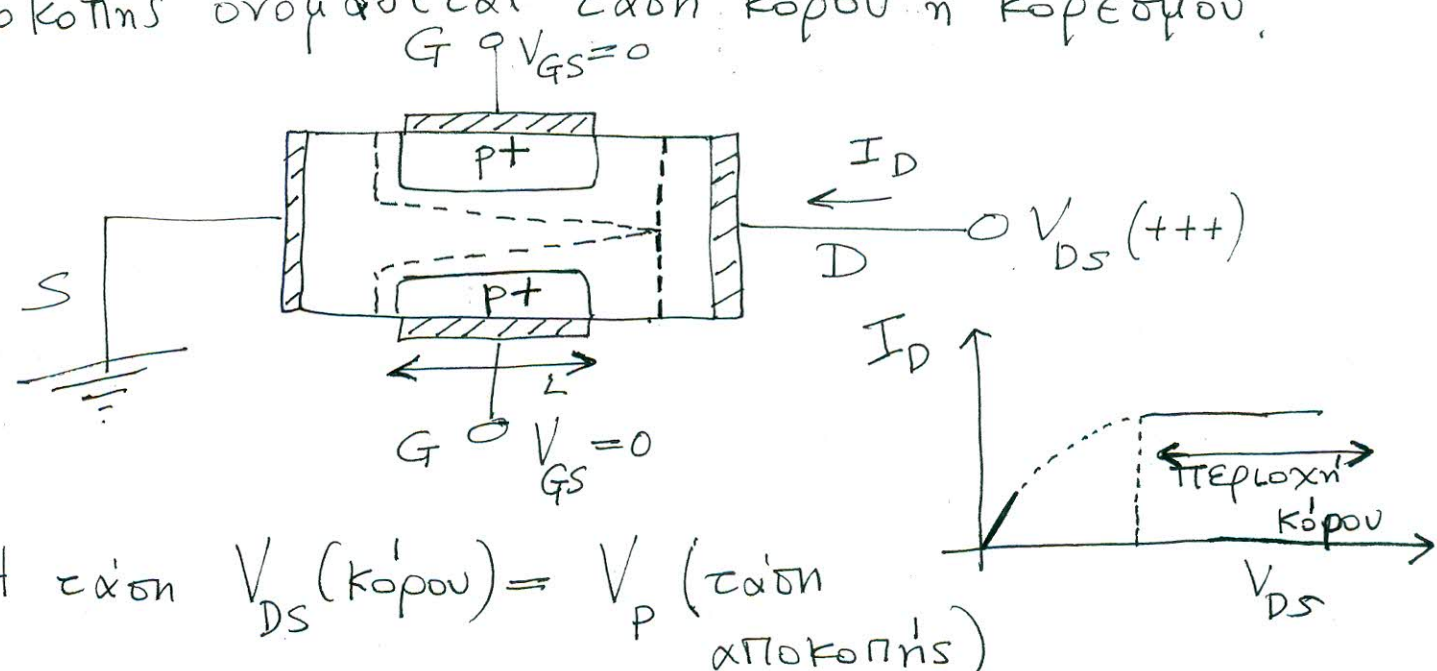 οκοπης ονομάζεται τάση κόρου ή κορεσμού.
G V_GS=0
p+
I_D
S
D V_DS (+++)
p+
L
G V_GS=0
I_D
Περιοχή
κόρου
V_DS
τάση V_DS (κόρου) = V_P (τάση
αποκοπής)